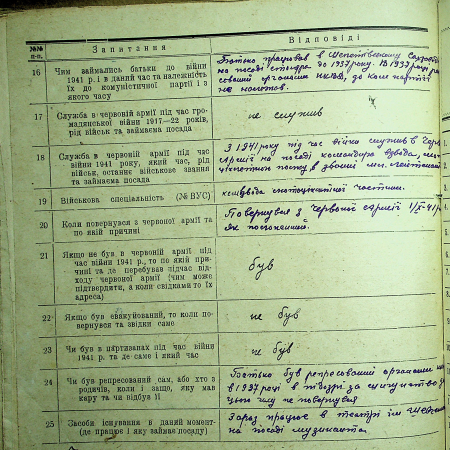 №№
п-п.
Запитання
Відповіді
16
Чим займались батьки до війни
1941 р. і в даний час та належність
їх до комуністичної партії і з
якого часу
Батько працював в
на посаді до 1937 року. В 1937 році
органами НКВС, до ком. партії
не належав.
17
Служба в червоній армії під час гро-
мадянської війни 1917—22 років,
рід військ та займаєма посада
не служив
18
Служба в червоній армії під час
війни 1941 року, який час, рід
військ, останнє військове звання
та займаєма посада
З 1941 року під час війни служив в Черв.
армії на посаді командира взвода,
в званні мл. лейтенант
19
Військова спеціальність (№ ВУС)
частини.
20
Коли повернувся з червоної армії та
по якій причині
Повернувся з червоної армії 1/X-41 р.
як полонений.
21
Якщо не був в червоній армії під
час війни 1941 р., то по якій при-
чині та де перебував підчас від-
ходу червоної армії (чим може
підтвердити, а коли свідками то їх
адреса)
був
22
Якщо був евакуйований, то коли по-
вернувся та звідки саме
не був
23
Чи був в партизанах під час війни
1941 р. та де саме і який час
не був
24
Чи був репресований сам, або хто з
родичів, коли і защо, яку мав
кару та чи відбув її
Батько був репресований органами
в 1937 році в підозрі за шпигунство
цього часу не повернувся
25
Засоби існування в даний момент
(де працює і яку займає посаду)
Зараз працює в театрі ім. Шевченка
на посаді музиканта.